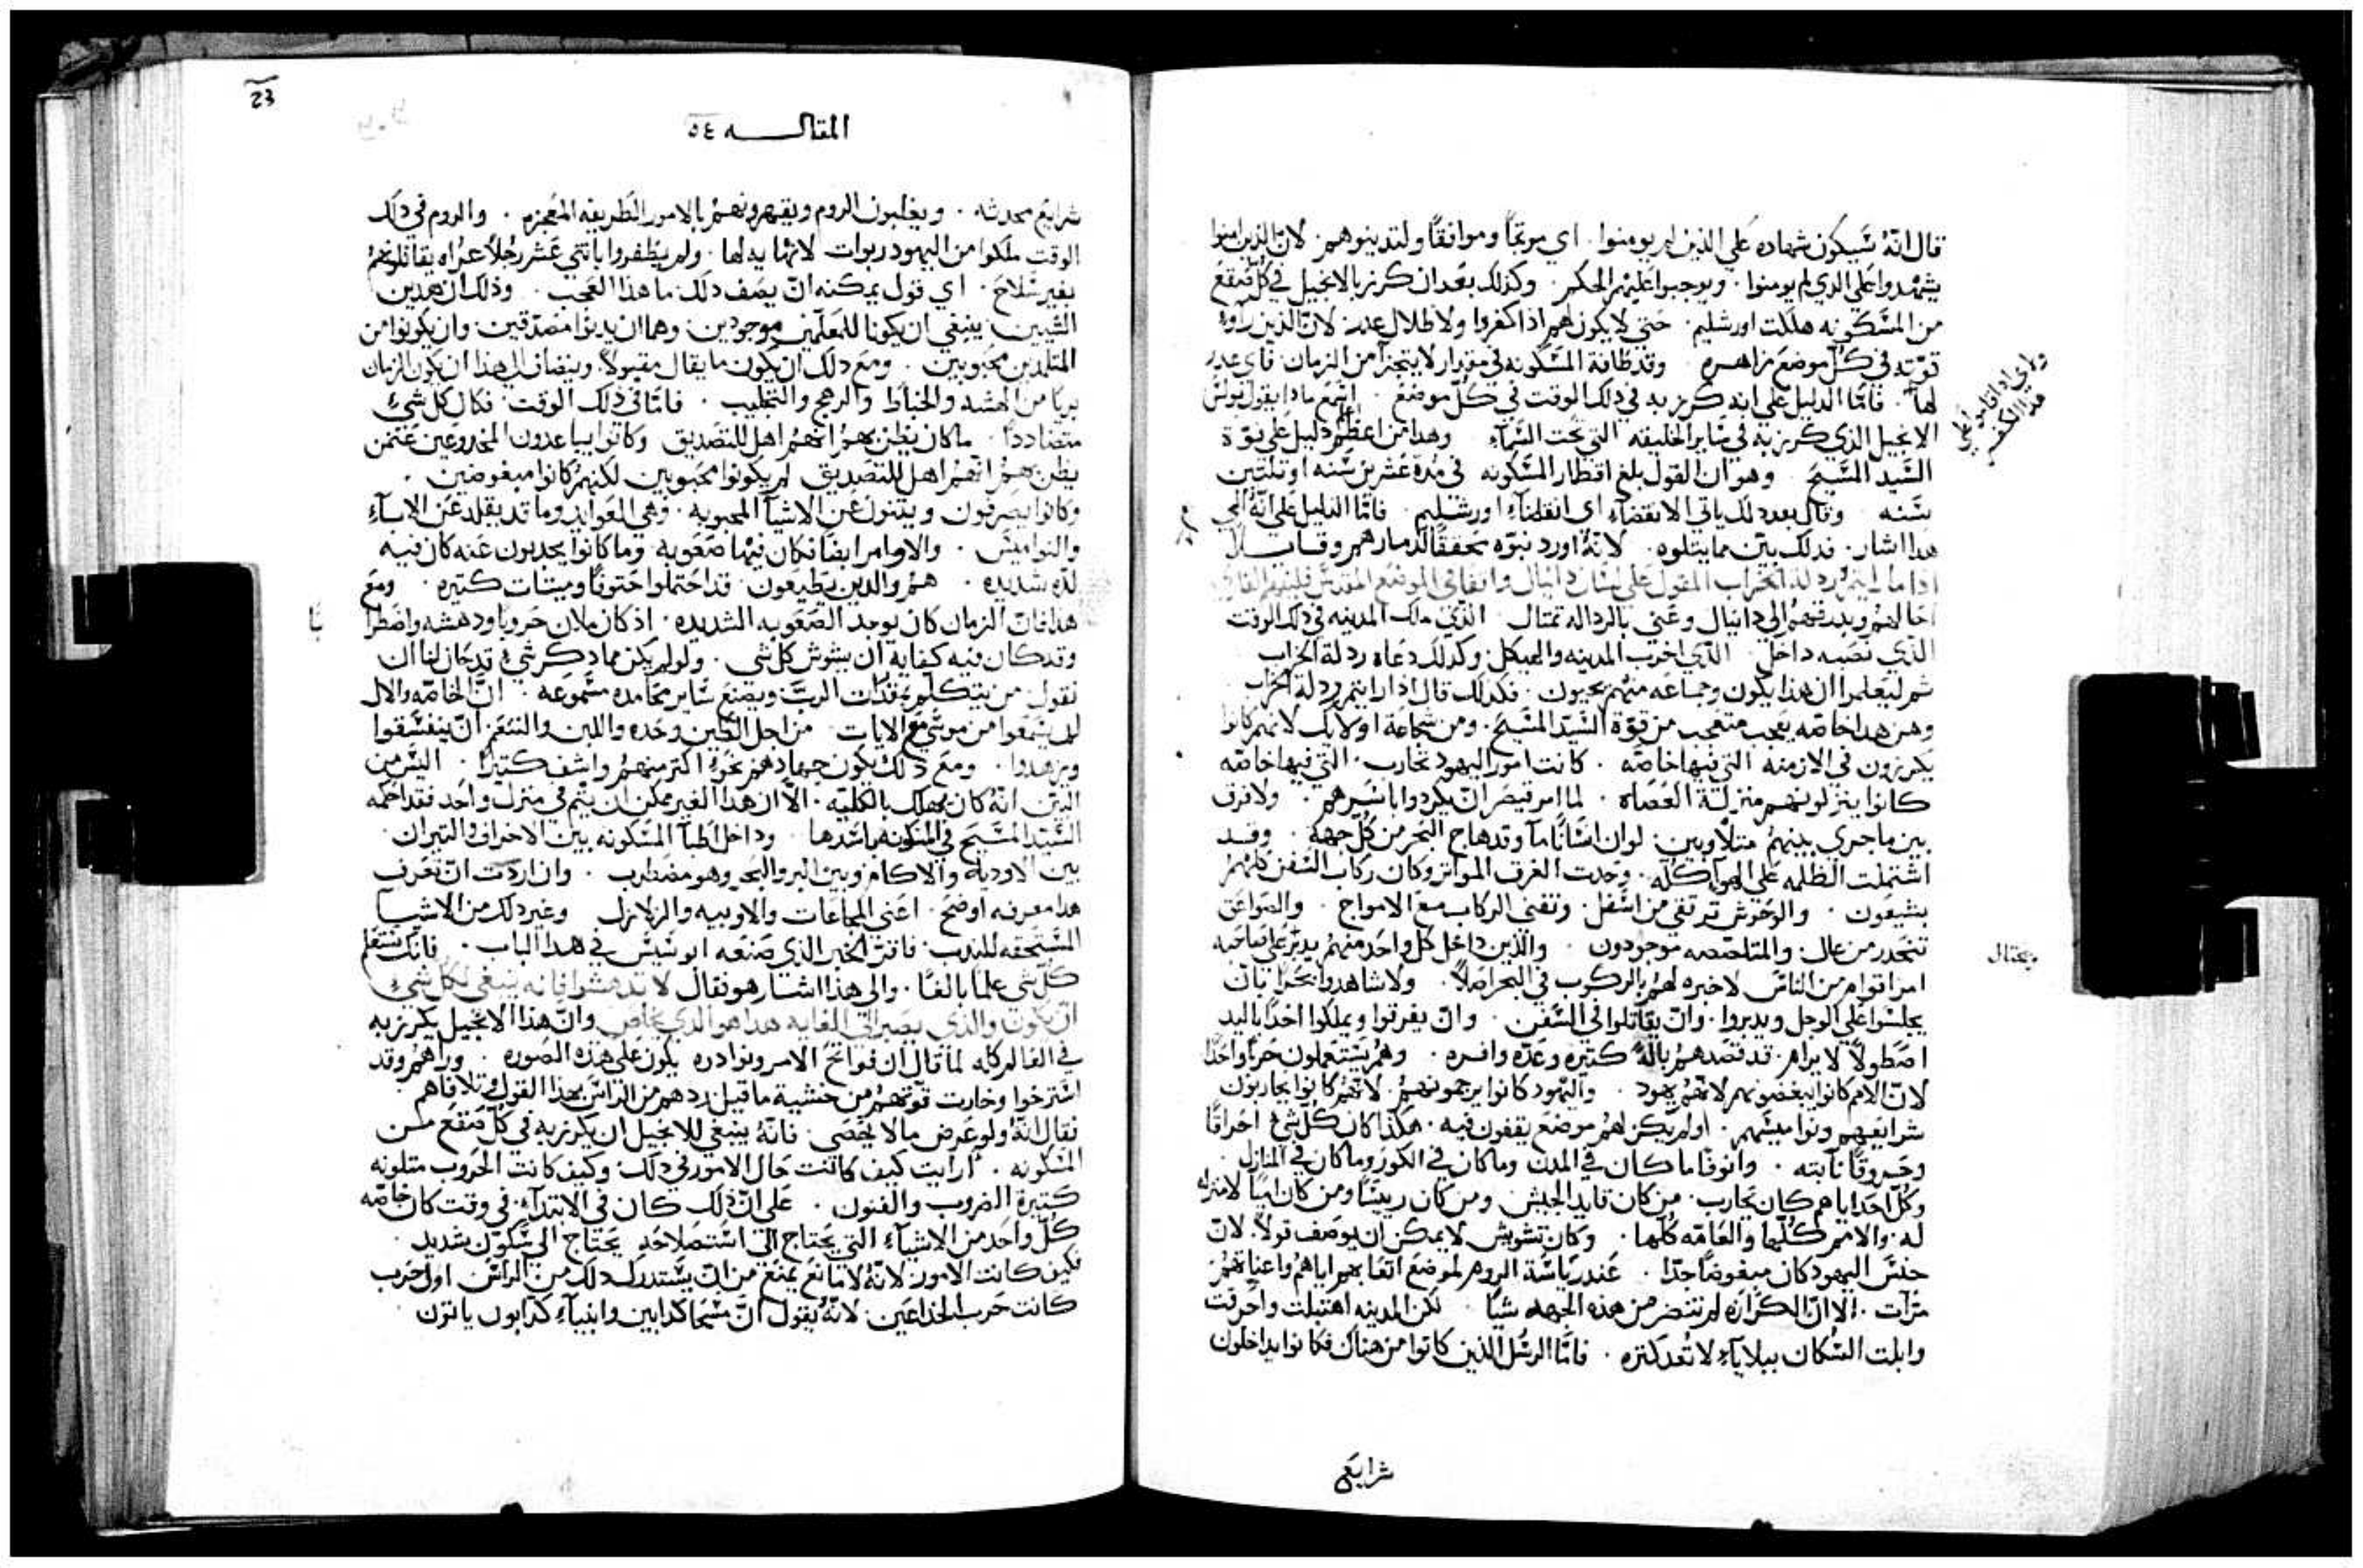 قال انّهُ سَيكون شهاده عَلي الذين لم يومنوا . اي موبّخًا وموافقًا ولتدينوهم . لان الذين امنوا
يشهدوا عَلي الذي لم يومنوا . ويوجبوا عَليهم الحكم . وكذلك بعَد ان كرز بالانجيل في كل صُقع
من المسَكونه هلكت اورشليم . حَتي لا يكون لهم اذا كفروا ولا ظلال عدر . لانّ الذين راوا
قوّته في كل موضعَ زاهره وقد طافة المسَكونه في مقدار لا يتجزا من الزمان . فاي عدر
لها . فامّا الدليل عَلي انه كرز به في دلك الوقت في كل موضعَ . اسمَع مادا يقول بولسَ
الانجيل الذي كرز به في سَاير الخليقه التي تحت السَماء وهدا من اعظم دليل عَلي قوّة
السَيد المسَيحَ وهو ان القول بلغ اقطار المسَكونه في مُدة عَشرين سَنه او تلتين
سَنه وقال بعد دلك ياتي الانقضاء اي انقضاء اورشليم . فامّا الدليل عَلي انّهُ الي
هدا اشار . فدلك بيّن مما يتلوه . لانّهُ اورد نبوّه تحققًا لدمارهم وقال
اذا ما رايتم ردلة الخراب المقول عَلي لسَان دانيال واقفا في الموضع المقدسَ فليفهم القاري
احالهم ويدفعهم الي دانيال وعَني بالرداله تمتال . الذي ملك المدينه في دلك الوقت
الذي نصَبه داخل . الذي اخرب المدينه والهيكل . وكدلك دعَاه ردلة الخراب
ثم ليعَلموا ان هدا يكون وجماعَه منهم يحيون . فكدلك قال ادا رايتم ردلة الخراب
ومن هدا خاصّه يعَجب متعَجب من قوّة السَيّد المسَيحَ . ومن شجاعَة اوليك لانهم كانوا
يكرزون في الازمنه التي فيها خاصّه . كانت امور اليهود تحارب . التي فيها خاصّه
كانوا ينزلونهم منزلة العَصاه . لما امر قيصَر ان يطردوا باسَرهم . ولا فرق
بين ما جري بينهم متلا وبين . لو ان انسَانًا ما وقد هاج البَحر من كُل جهة . وقد
اشتملت الظلمه عَلي الهوا كله . وحَدت الغرق المواتر وكان ركاب السَفن كلهم
يشيعَون . والوحَوش ترتقي من اسَفل . وتفني الركاب معَ الامواج . والصَواعَق
تنحَدر من عال . والمتلصَصه موجودون والذين داخل كل واحَد منهم يدبّر عَلي صاحَبه
امر اقوام من الناسَ لا خبره لهم بالركوب في البحر اصَلًا . ولا شاهدوا بحَرًا بان
يجلسَوا عَلي الوجل ويدبروا . وان يقاتلوا في السَفن . وان يغرقوا ويملكوا اخدًا باليد
اصَطولًا لا يرام . قد قصَدهم بالة كتيره وعَدّه وافره . وهم يسَتعَملون حَربًا واحَدا
لانّ الامم كانوا يبغضونهم لانّهم يهود . واليَهود كانوا يرجمونهم . لانّهم كانوا يحاربون
شرايعَهم ونواميسَهم . اولم يكن لهم موضعَ يقفون فيه . هكذا كان كل شيء احَراقًا
وحَروقًا نابته . وانوفا ما كان في المدن وما كان في الكور وما كان في المنازل .
وكل احَد اياهم كان يحَارب . من كان قايد الجيش ومن كان رييسًا ومن كان اميًا لا منزله
له . والامم كُلّها والعَامّه كُلّها . وكان تشويش لا يمكن ان يوصَف قولًا . لانّ
جنسَ اليهود كان مبغوضًا جدّا . عَند رياسَة الروم لموضعَ اتعَابهم اياهم واعناتهم
مرّات . الا ان الكرازه لم تنضر من هذه الجهه شيًا . لكن المدينه اهتبلت واحَرقت
وابلت السُكان ببلاياء لا تُعَد كتره . فامّا الرسُل الذين كانوا من هناك فكانوا يداخلون
شرايعَ
ويحتال
23
المقاله ٥٤
شرايعَ محدثه . ويغلبون الروم ويقهرونهم بالامور الطريفه المعَجزه . والروم في دلك
الوقت ملكوا من اليهود ربوات لا نهايه لها . ولم يظفروا باتني عَشر رجُلًا عرُاه يقاتلونهم
بغير سَلاحَ . اي قول يمكنه ان يصَف دلك . ما هذا العَجب . وذلك ان هدين
الشيين . ينبغي ان يكونا للمعَلمين موجودين . وهما ان يديّوا مصَدّقين . وان يكونوا من
المتلمدين محَبوبين . ومعَ دلك ان يكون ما يقال مقبولًا . وينضاف الي هدا ان يكون الزمان
بريًا من الهشه والخباط والرهج والتخليب . فامّا في ذلك الوقت . فكان كل شيء
متضاددًا . ما كان يظن بهم انهم اهل للتصَديق وكانوا يباعدون المخدوعَين عَمّن
يظن بهم انهم اهل للتصَديق لم يكونوا محَبوبين لكنهم كانوا مبغوضين .
وكانوا يصَرفون ويتنون عَن الاشيا المحبوبه . وهي العَوايد وما قد يقلد عَن الاباء
والنواميسَ . والاوامر ايضا فكان فيها صَعَوبه وما كانوا يجدبون عَنه كان فيه
لذه شديده . هم والدين يطيعَون . قد احَتملوا حَتوفًا وميتات كتيره . ومعَ
هدا فان الزمان كان يوجد الصَعَوبه الشديده . اذ كان ملان حَروبًا ودهشه واضطرابا
وقد كان فيه كفاية ان يشوش كل شي . ولو لم يكن مما دكر شيء قد حَان لنا ان
نقول من يتكلم بقدّات الربّ ويصَنعَ سَاير محَامده مسَموعَه . انّ الخاصّه والال
لم يسَمعَوا من موسَي معَ الايات من اجل الطين وحَده واللبن والتنعَم . ان ينفسَقوا
ويزهدوا . ومعَ ذلك يكون جهادهم نحَوه اكتر منهم واشف كتيرًا . اليسَ من
البيّن انّهُ كان يهلك بالكليّه . الّا ان هدا الغير ممكن ان يتم في منزل واحَد فقد احكمه
السَيّد المسَيحَ في المسَكونه باسَرها وداخل اطبا المسَكونه بين الاخراف والنيران
بين الاوديه والاكام وبين البر والبَحر وهو مضطرب . وان اردت ان تعَرف
هدا معرفه اوضحَ . اعَني المجاعَات والاوبيه والزلازل وغير دلك من الاشيا
المسَتحَقه للندب . فاقرَ الخبر الذي صَنعَه ابوسَيسَ في هدا الباب . فانك تتعَلم
كل شي علمًا بالغًا . والي هذا اشار هو فقال لا تدهشوا فانه ينبغي لكل شيء
ان يكون والذي يصَبر الي الغايه هدا هو الذي يخلصَ وانّ هذا الانجيل يكرز به
في العَالم كله لما قال ان فواتحَ الامر ونوادره يكون عَلي هذه الصَوره . وراهم وقد
اسَترخوا وخارت قوتهم من خشية ما قيل ردهم من الراسَ بهذا القول وتلافاهم
فقال انّهُ ولو عَرض ما لا يحصَي . فانّهُ ينبغي للانجيل ان يكرز به في كل صُقعَ من
المسَكونه . ارايت كيف كانت حَال الامور في دلك . وكيف كانت الحَروب متلونه
كتيرة الضروب والفنون . عَلي انّ ذلك كان في الابتداء . في وقت كان خاصّه
كل واحَد من الاشياء التي يحَتاج الي اسَتصَلاحَه يحَتاج الي سَكون شديد .
فكيف كانت الامور لانّهُ لا مانعَ يمنعَ من ان يسَتدرك دلك من الراسَ اول حَرب
كانت حَرب الخداعَين . لانّهُ يقول انّ مُسَحا كدابين وانبياء كدابون ياتون .